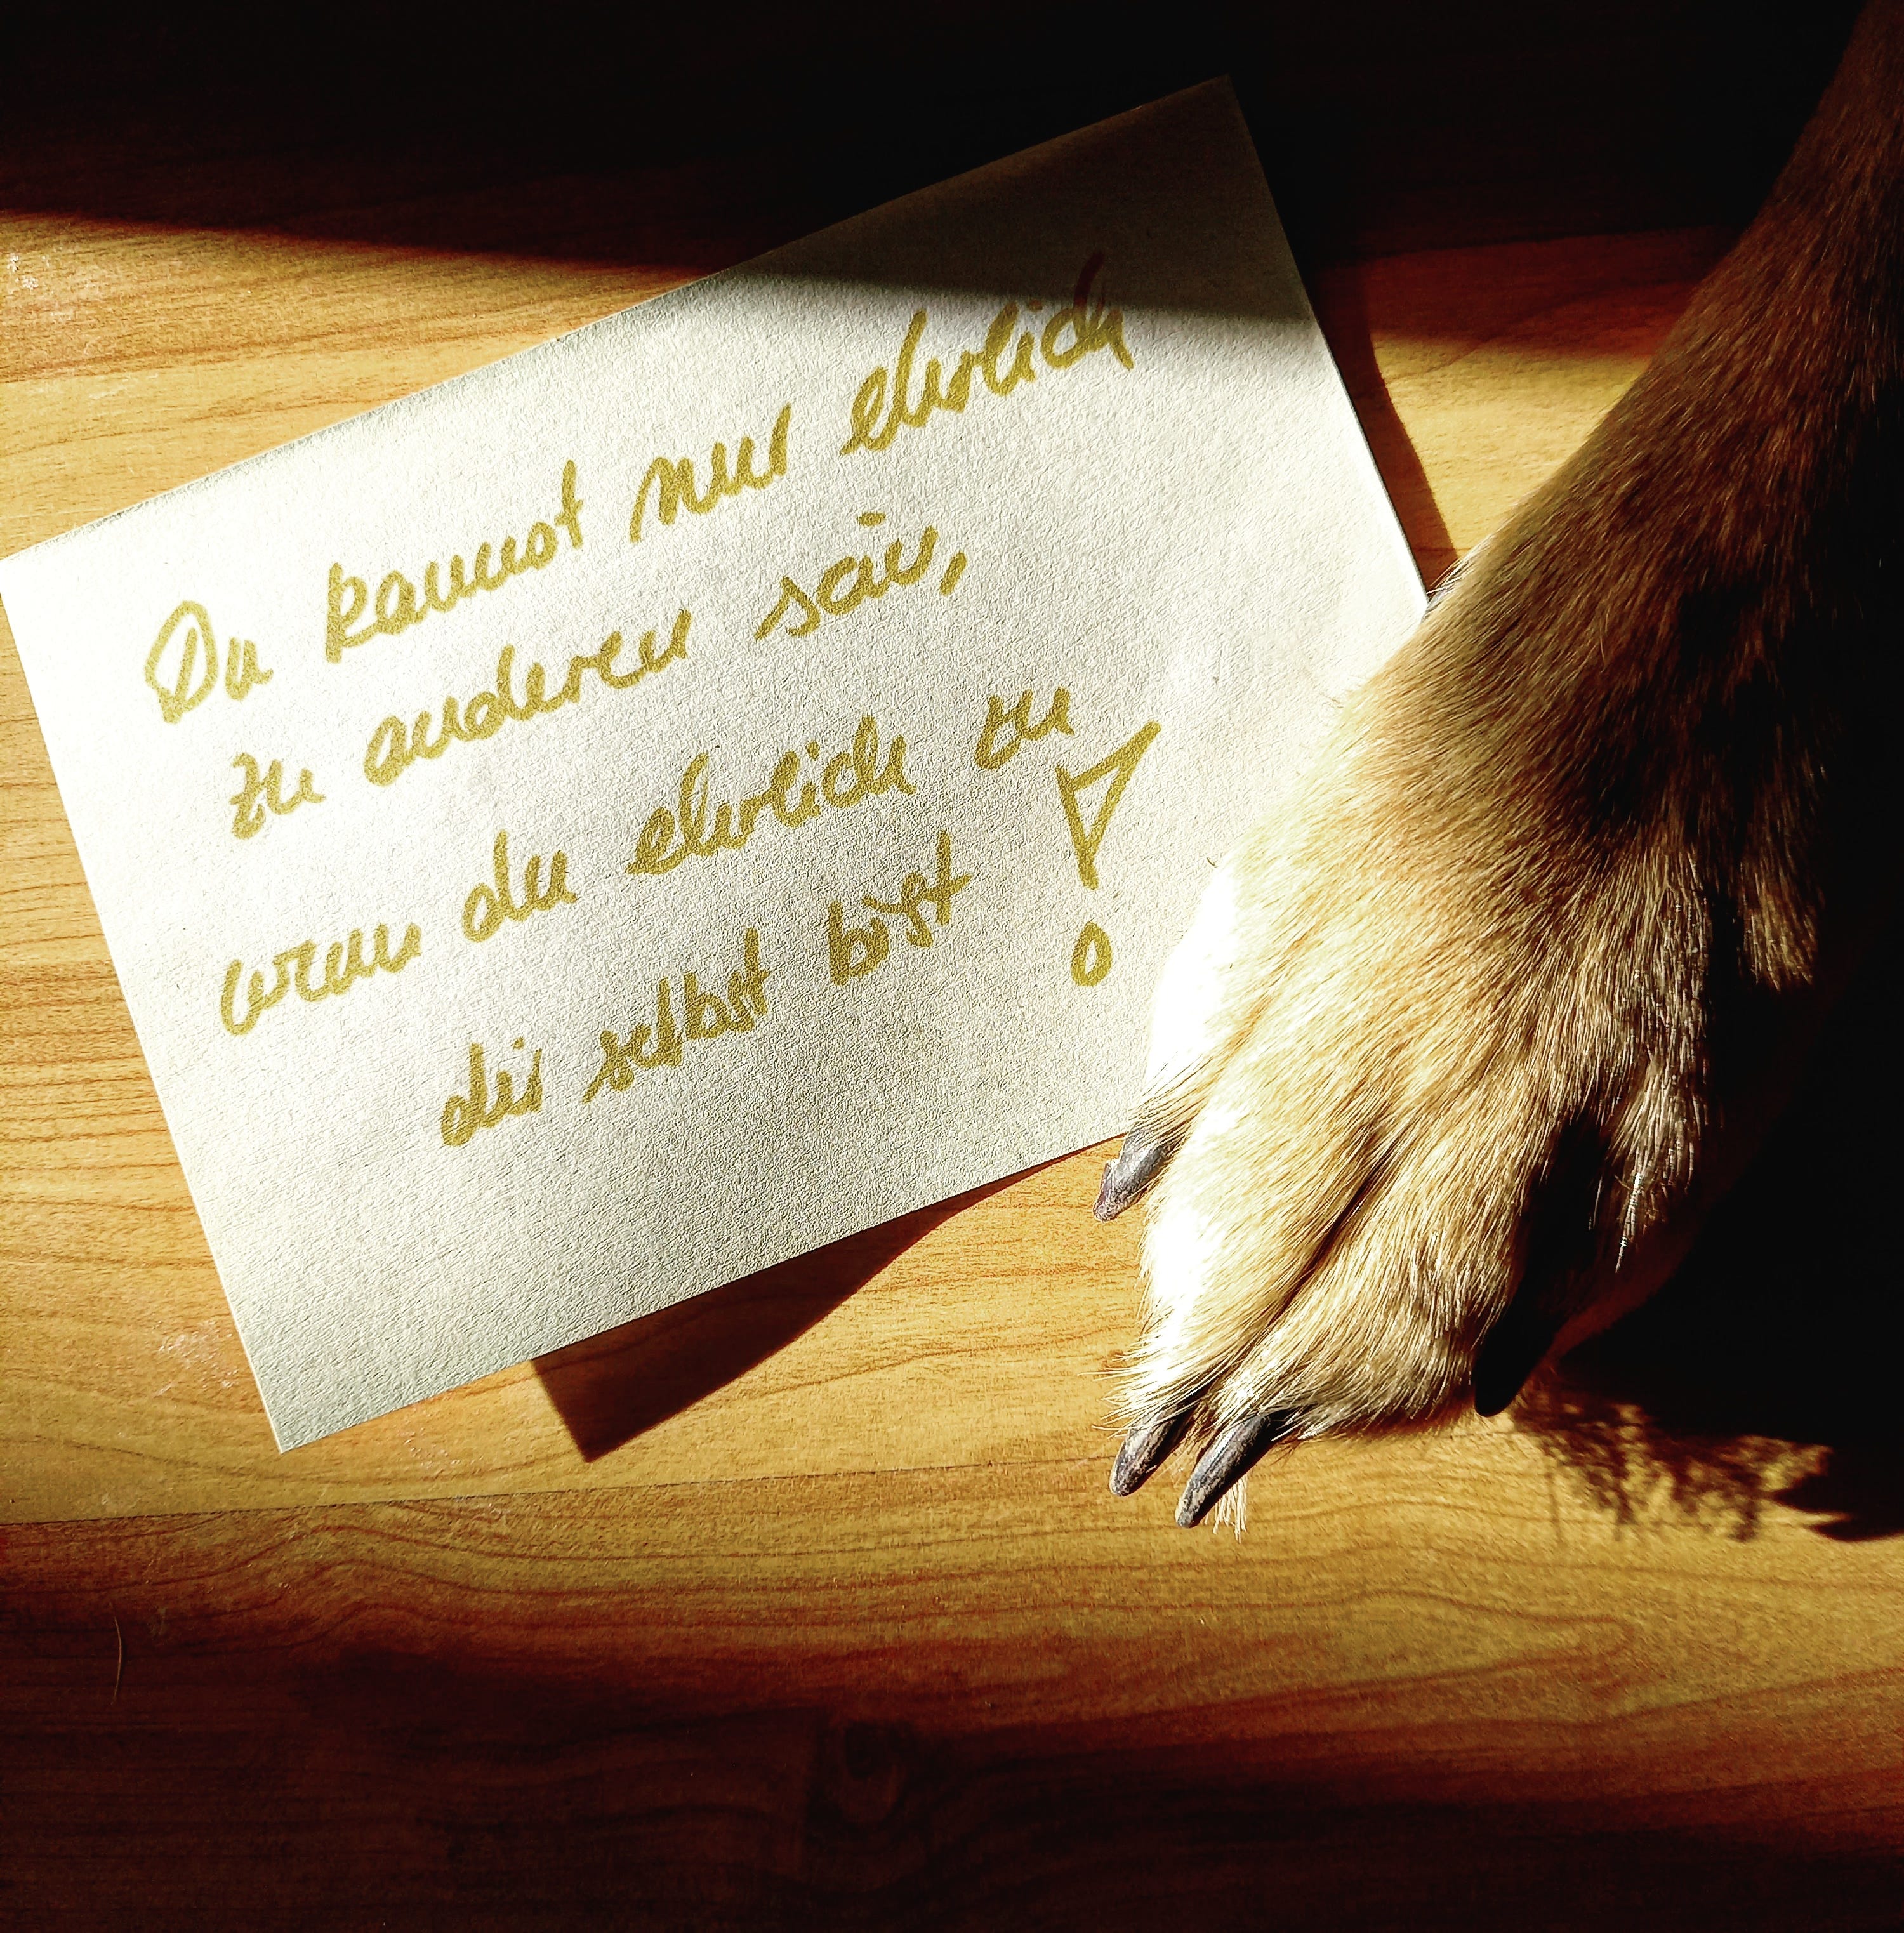 Du kannst nur ehrlich
zu anderen sein,
wenn du ehrlich zu
dir selbst bist !